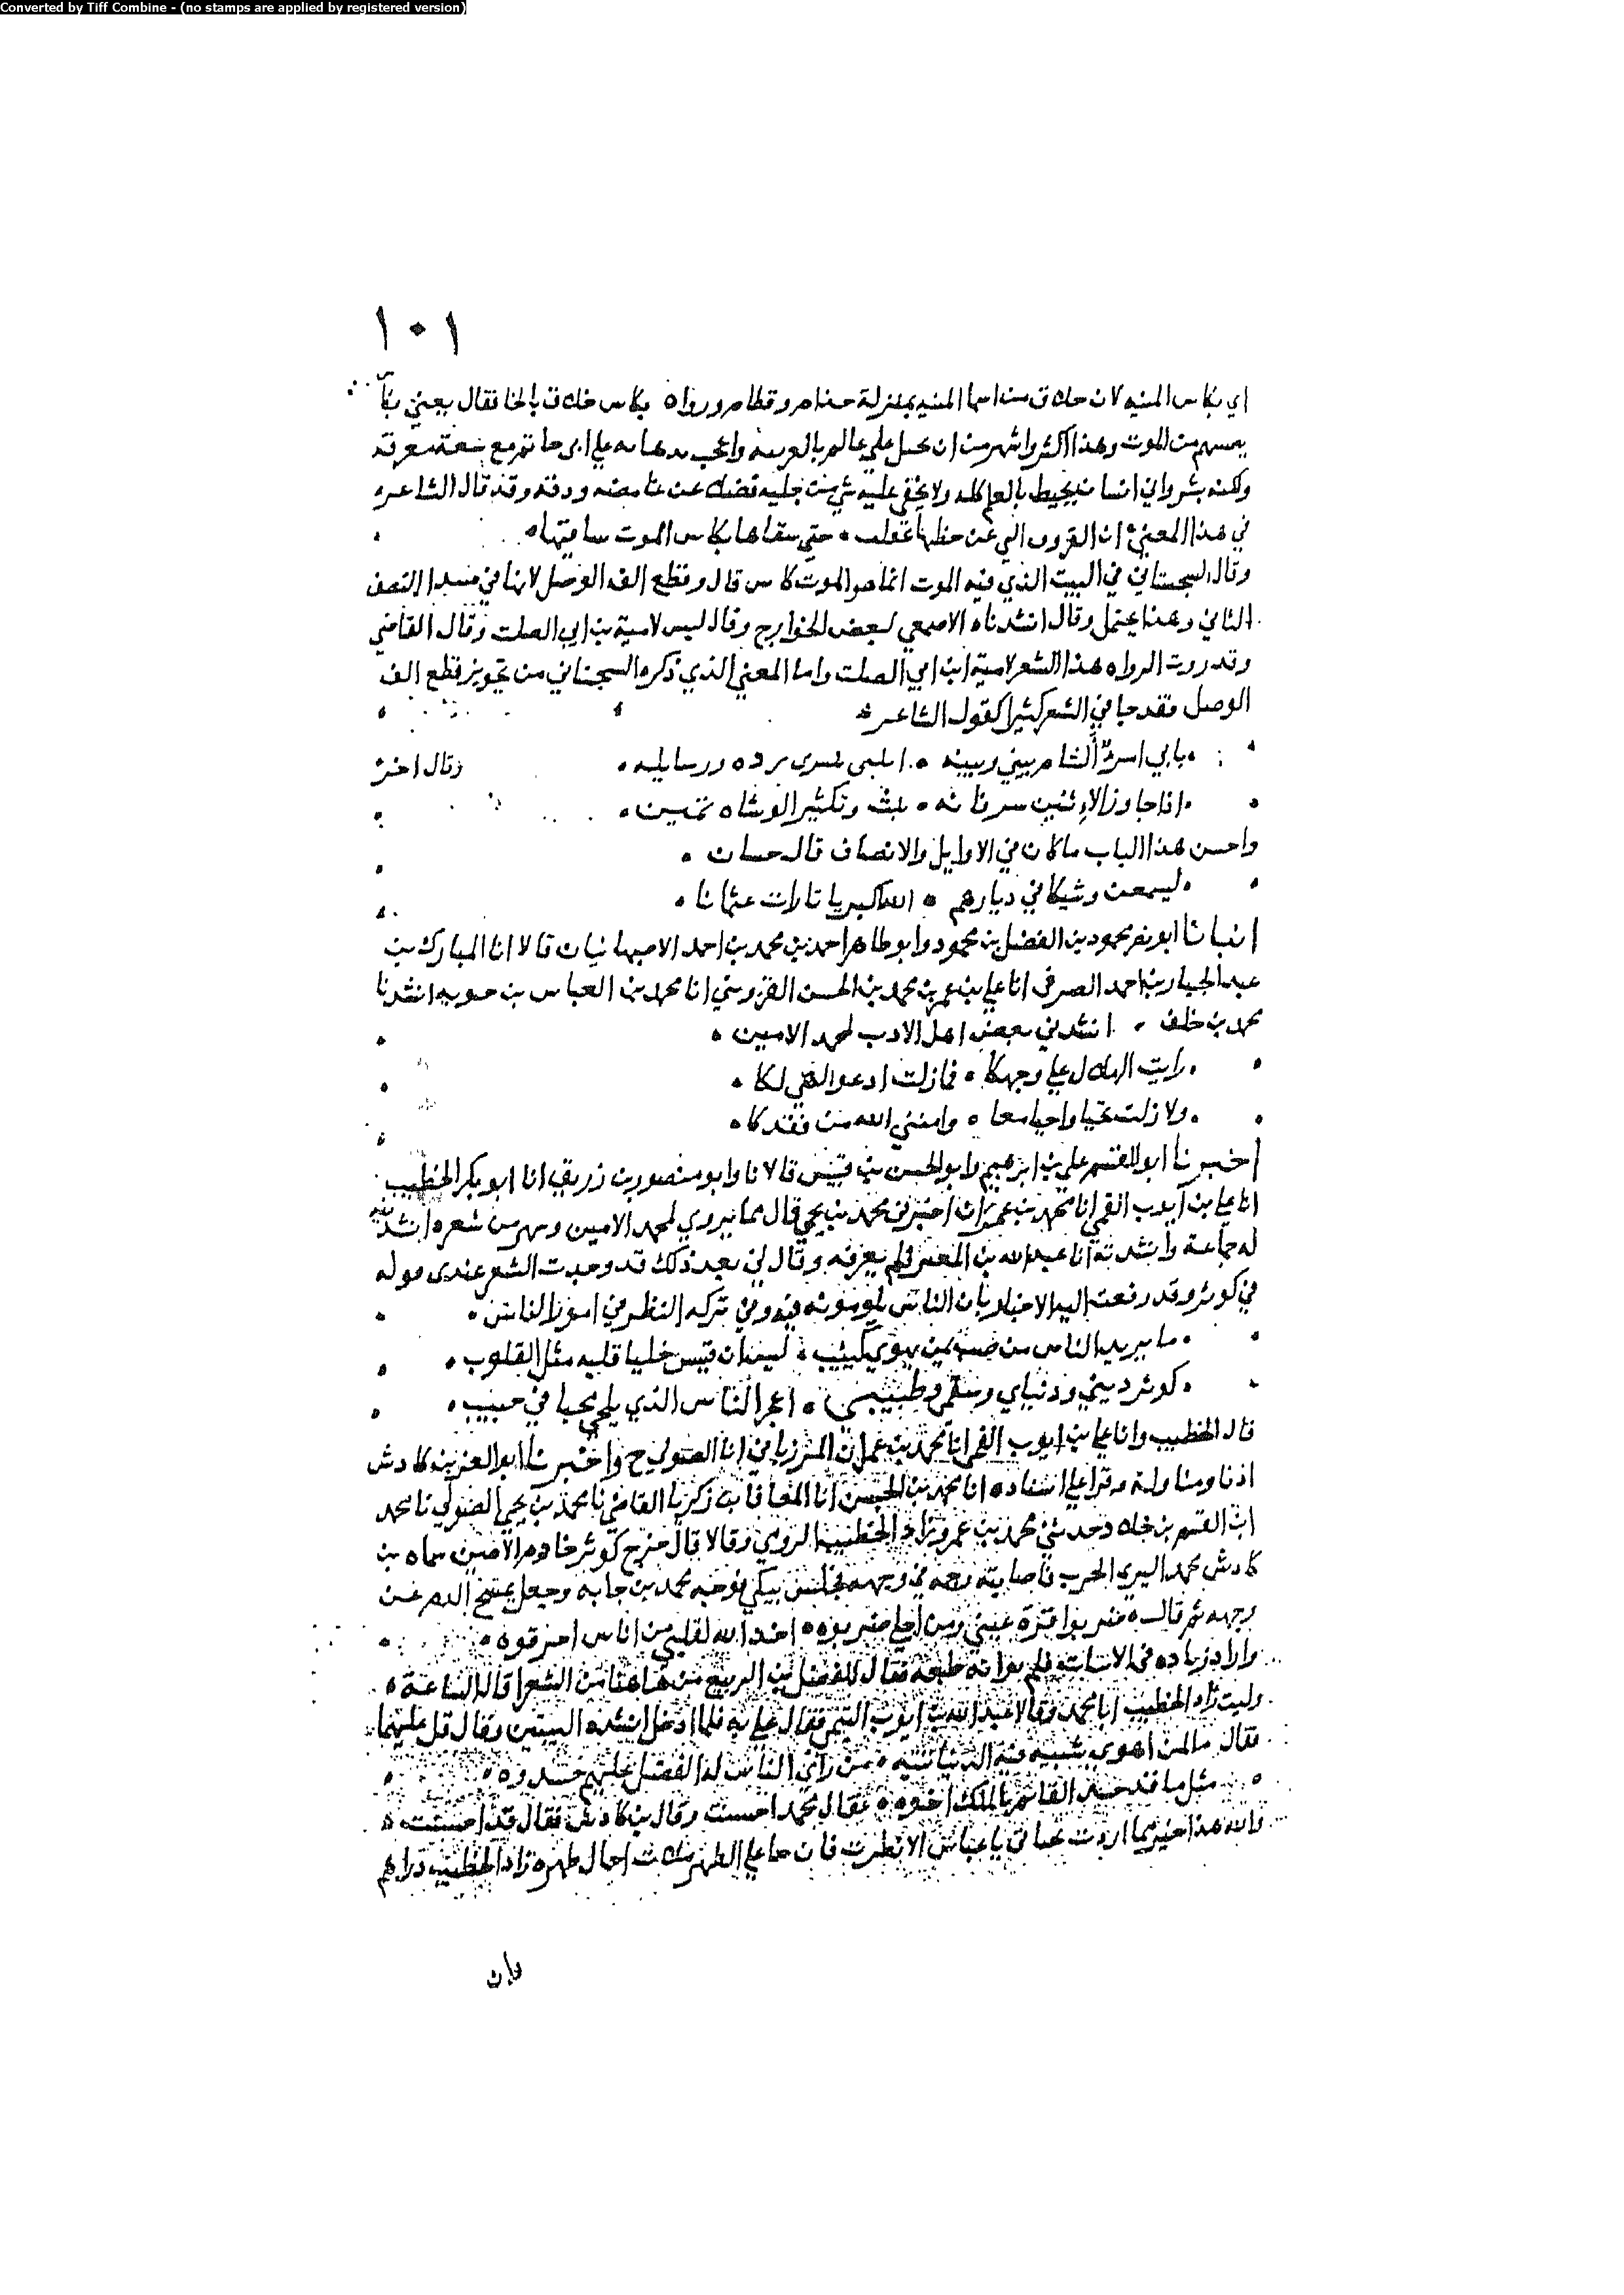 Converted by Tiff Combine - (no stamps are applied by registered version)
١٠١
اي بكاس المنيه لان حلاق من اسما المنيه بمنزلة حذام وقطام ورواه بكاس خلاق بالخا فقال يعني بكأس
من الموت وهذا اكثر واشهر من ان على عالم بالعربيه واعجب على ابي حاتم مع سعة معرفته
ولكنه بشر واي انسان يحيط بالعلم كله ولا يخفى عليه شي من جليه فضلا عن غامضه ودقه وقد قال الشاعر
في هذا المعنى ان القرون التي عن حظها غفلت حتى سقاها بكاس الموت ساقيها
وقال السجستاني في البيت الذي فيه الموت انما هو الموت كاس قال وقطع الف الوصل لانها في مبتدا النصف
الثاني وهذا يحتمل وقال انشدناه الاصمعي لبعض الخوارج وقال ليس لامية بن ابي الصلت وقال القاضي
وقد روت الرواه هذا الشعر لامية ابن ابي الصلت واما المعنى الذي ذكره السجستاني من تجويز قطع الف
الوصل فقد جا في الشعر كثيرا كقول الشاعر
بابي امرؤ الشام بيني وبينه برده ورسايله وقال اخر
اذا جاوز الاثنين سر فانه بنث وتكثير الوشاه قمين
واحسن هذا الباب ما كان في الاوايل والانصاف قال حسان
ليسمعن وشيكا في ديارهم الله اكبر يا ثارات عثمانا
انبانا ابو نصر محمود بن الفضل بن محمود وابو طاهر احمد بن محمد بن احمد الاصبهانيان قالا انا المبارك بن
عبد الجبار بن احمد الصرفي انا علي بن عمر بن محمد بن الحسن القزويني انا محمد بن العباس بن حيويه انشدنا
محمد بن خلف انشدني بعض اهل الادب لمحمد الامين
رايت الهلال على وجهكا فما زلت ادعو الهي لكا
ولا زلت تحيا واحيا معا وامنني الله من فقدكا
اخبرنا ابو القسم علي بن ابرهيم وابو الحسن بن قبيس قالا نا وابو منصور بن زريق انا ابو بكر الخطيب
انا علي بن ايوب القمي انا محمد بن عمران اخبرني محمد بن يحيى قال مما يروي لمحمد الامين وشهر من شعره انشدنيه
له جماعة وانشدته انا عبد الله بن المعتز فلم يعرفه وقال لي بعد ذلك قد وجدت الشعر عندي هو له
في كوثر وقد رفعت اليه الاخبار بان الناس يلومونه فيه وفي تركه النظر في امور الناس
ما يريد الناس من صب بمن يهوى كئيب ليس ان قيس خليا قلبه مثل القلوب
كوثر ديني ودنياي وسقمي وطبيبي اعجز الناس الذي يلحي محبا في حبيب
قال الخطيب وانا علي بن ايوب القمي انا محمد بن عمران المرزباني انا الصولي ح واخبرنا ابو العز بن كادش
اذنا ومناولة وقرا علي اسناده انا محمد بن الحسين انا المعافا بن زكريا القاضي نا محمد بن يحيى الصولي نا محمد
ابن القسم بن خلاد وحدثني محمد بن عمرو زاد الخطيب الرومي وقالا قال خرج كوثر خادم الامين سماه بن
كادش محمد اليرى الحرب فاصابته رجمه في وجهه فجلس يبكي فوجه محمد من جا به وجعل يمسح الدم عن
وجهه ثم قال ضربوا قرة عيني ومن اجلي ضربوه اخذ الله لقلبي من اناس احرقوه
واراد زياده في الابيات فلم يواته طبعه فقال للفضل بن الربيع من هاهنا من الشعرا قال الساعة
وليت زاد الخطيب ابا محمد وقالا عبد الله بن ايوب التيمي فقال علي به فلما ادخل انشده البيتين وقال قل عليهما
فقال ما لمن اهوى شبيه فيه الدنيا تتيه من راى الناس له الفضل عليهم حسدوه
مثل ما قد حسد القاسم بالملك اخوه فقال محمد احسنت وقال بن كادش فقال قد احسنت
والله هذا خير مما اردت يا عباس الا نظرت فان جا على الظهر ملات احمال ظهره زاد الخطيب دراهم
وان